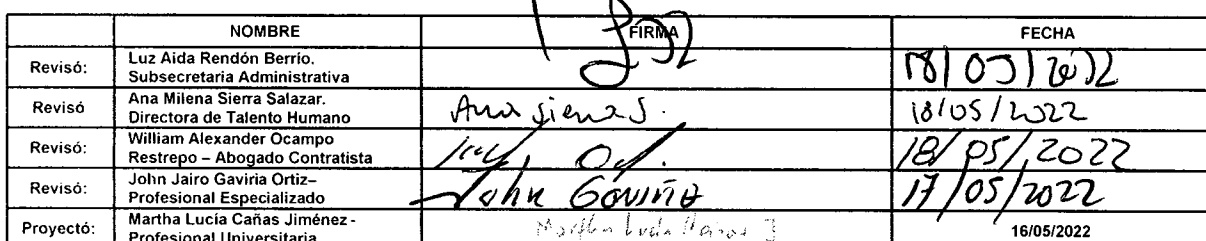 NOMBRE FIRMA FECHA
Revisó: Luz Aida Rendón Berrío.
Subsecretaria Administrativa
18/05/2022
Revisó Ana Milena Sierra Salazar.
Directora de Talento Humano
Ana Sierra S. 18/05/2022
Revisó: William Alexander Ocampo
Restrepo – Abogado Contratista
18/05/2022
Revisó: John Jairo Gaviria Ortiz–
Profesional Especializado
John Gaviria 17/05/2022
Proyectó: Martha Lucía Cañas Jiménez -
Profesional Universitaria
Martha Lucía Cañas J 16/05/2022